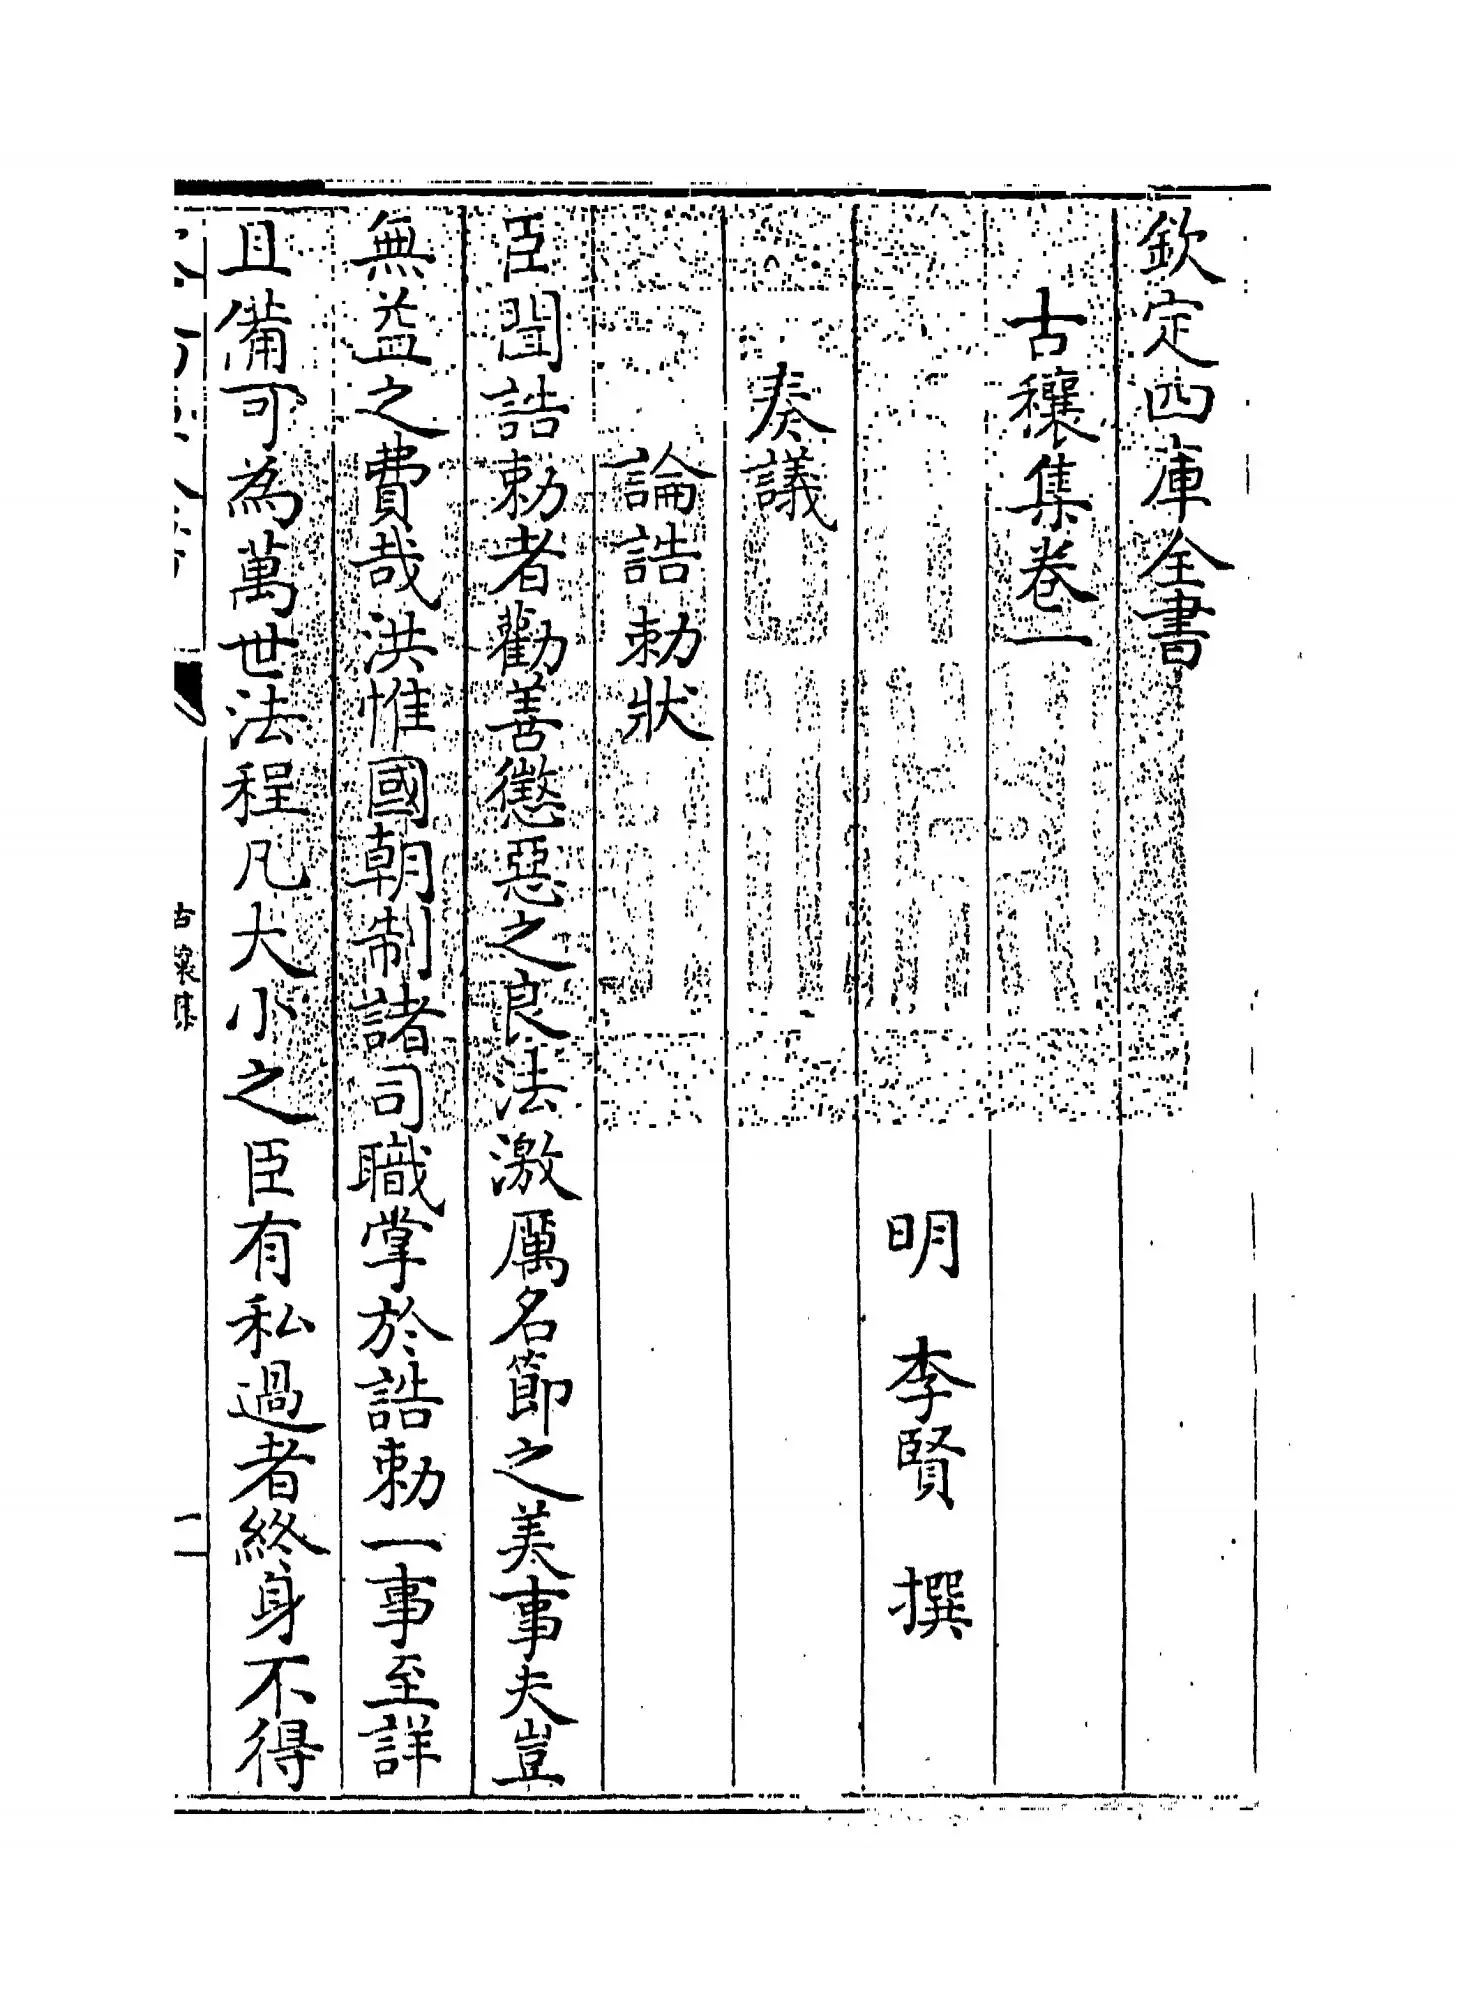 欽定四庫全書
古穰集卷一
明 李賢 撰
奏議
論誥勅狀
臣聞誥勅者勸善懲惡之良法激厲名節之美事夫豈
無益之費哉洪惟國朝制諸司職掌於誥勅一事至詳
且備可為萬世法程凡大小之臣有私過者終身不得
古穰集
一